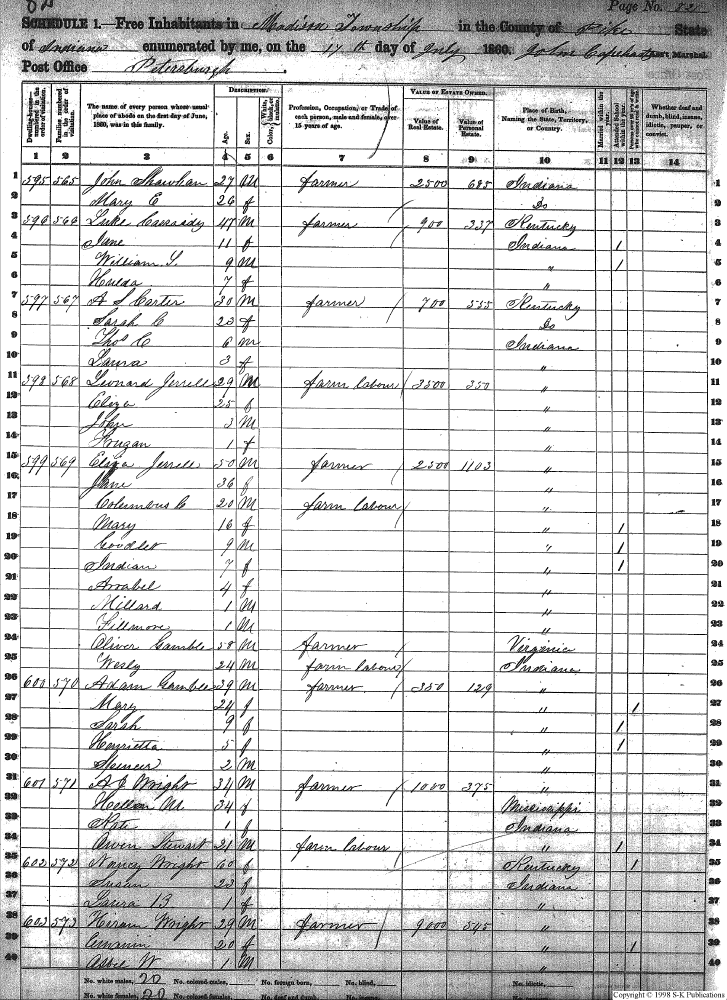 82
Page No. 82
SCHEDULE 1.—Free Inhabitants in Madison Township in the County of Pike State
of Indiana enumerated by me, on the 17th day of July 1860. John Capehart Ass't Marshal.
Post Office Petersburgh.
Dwelling-house—numbered in the order of visitation.
Families numbered in the order of visitation.
The name of every person whose usual place of abode on the first day of June, 1860, was in this family.
DESCRIPTION.
Age.
Sex.
Color, White, black, or mulatto.
Profession, Occupation, or Trade of each person, male and female, over 15 years of age.
VALUE OF ESTATE OWNED.
Value of Real Estate.
Value of Personal Estate.
Place of Birth, Naming the State, Territory, or Country.
Married within the year.
Attended School within the year.
Whether deaf and dumb, blind, insane, idiotic, pauper, or convict.
1 2 3 4 5 6 7 8 9 10 11 12 13 14
1 595 565 John Shawhan 27 M farmer 2500 685 Indiana 1
2 Mary E 26 f Do 2
3 596 566 Luke Cassidy 47 M farmer 900 337 Kentucky 3
4 Jane 11 f Indiana 1 4
5 William S. 9 M " 1 5
6 Hulda 7 f " 6
7 597 567 A S Carter 30 M farmer 700 555 Kentucky 7
8 Sarah C 23 f Do 8
9 Thos C 6 m Indiana 9
10 Laura 3 f " 10
11 598 568 Leonard Jerrell 29 M farm labour 3500 350 " 11
12 Eliza 25 f " 12
13 John 3 M " 13
14 1 f " 14
15 599 569 Jerrell 50 M farmer 2500 1103 " 15
16 Jane 36 f " 16
17 Columbus C 20 M farm labour " 17
18 Mary 16 f " 1 18
19 Goodlet 9 M " 1 19
20 Indian 7 f " 1 20
21 Arrabel 4 f " 21
22 Millard 1 M " 22
23 Fillmore 1 M " 23
24 Oliver Gamble 58 M farmer Virginia 24
25 Wesly 24 M farm labour Indiana 25
26 600 570 Adam Gamble 39 M farmer 350 129 " 26
27 Mary 24 f " 1 27
28 Sarah 9 f " 1 28
29 Henrietta 5 f " 1 29
30 Spencer 2 M " 30
31 601 571 A J Wright 34 M farmer 1000 375 " 31
32 Hellen M. 34 f Mississippi 32
33 Kate 1 f Indiana 33
34 Owen Stewart 21 M farm labour " 1 34
35 602 572 Nancy Wright 60 f Kentucky 1 35
36 Susan 23 f Indiana 36
37 Laura B 1 f " 37
38 603 573 Hiram Wright 39 M farmer 9000 545 " 38
39 20 f " 1 39
40 W 1 M " 40
No. white males, 20 No. colored males, No. foreign born, No. blind, No. idiotic,
No. white females, 20 No. colored females, No. deaf and dumb, No. insane,
Copyright © 1998 S-K Publications